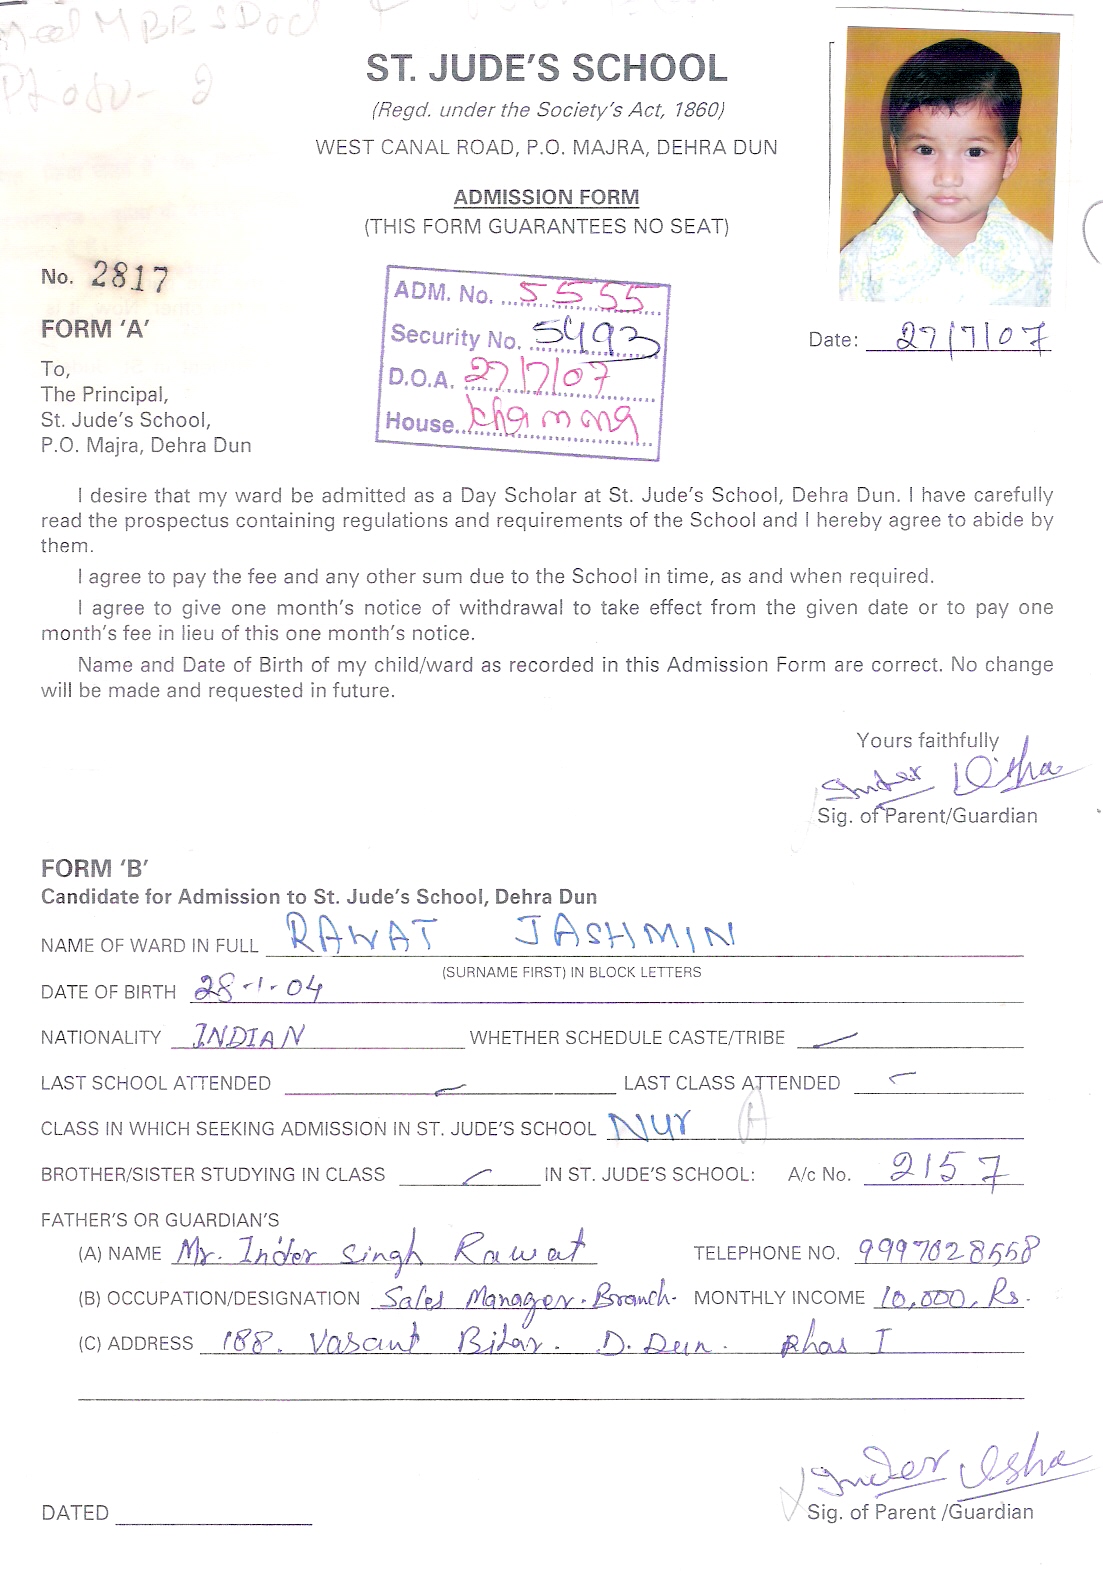 ST. JUDE'S SCHOOL
(Regd. under the Society's Act, 1860)
WEST CANAL ROAD, P.O. MAJRA, DEHRA DUN
ADMISSION FORM
(THIS FORM GUARANTEES NO SEAT)
No. 2817
ADM. No. 5555
Security No. 5493
D.O.A. 27/7/07
House
FORM 'A'
Date: 27/7/07
To,
The Principal,
St. Jude's School,
P.O. Majra, Dehra Dun
I desire that my ward be admitted as a Day Scholar at St. Jude's School, Dehra Dun. I have carefully
read the prospectus containing regulations and requirements of the School and I hereby agree to abide by
them.
I agree to pay the fee and any other sum due to the School in time, as and when required.
I agree to give one month's notice of withdrawal to take effect from the given date or to pay one
month's fee in lieu of this one month's notice.
Name and Date of Birth of my child/ward as recorded in this Admission Form are correct. No change
will be made and requested in future.
Yours faithfully
Inder Usha
Sig. of Parent/Guardian
FORM 'B'
Candidate for Admission to St. Jude's School, Dehra Dun
NAME OF WARD IN FULL RAWAT JASHMIN
(SURNAME FIRST) IN BLOCK LETTERS
DATE OF BIRTH 28-1-04
NATIONALITY INDIAN WHETHER SCHEDULE CASTE/TRIBE
LAST SCHOOL ATTENDED LAST CLASS ATTENDED
CLASS IN WHICH SEEKING ADMISSION IN ST. JUDE'S SCHOOL Nur A
BROTHER/SISTER STUDYING IN CLASS IN ST. JUDE'S SCHOOL: A/c No. 2157
FATHER'S OR GUARDIAN'S
(A) NAME Mr. Inder Singh Rawat TELEPHONE NO.
(B) OCCUPATION/DESIGNATION Sales Manager. Branch. MONTHLY INCOME 10,000, Rs.
(C) ADDRESS 188. Vasant Bihar. D. Dun. Phas I
Inder Usha
DATED Sig. of Parent /Guardian